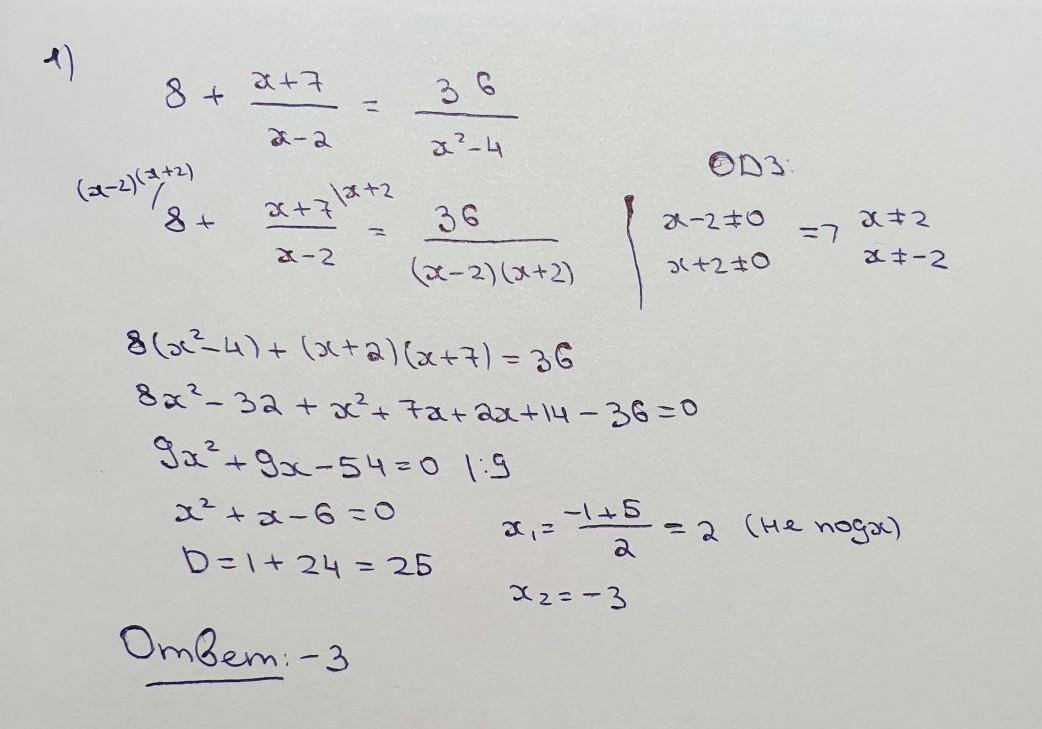 1)
8 + (x+7)/(x-2) = 36/(x²-4)
(x-2)(x+2)/ 8 + (x+7)/(x-2) \x+2 = 36/((x-2)(x+2))
ОДЗ:
x-2≠0
x+2≠0
=> x≠2
x≠-2
8(x²-4) + (x+2)(x+7) = 36
8x² - 32 + x² + 7x + 2x + 14 - 36 = 0
9x² + 9x - 54 = 0 |:9
x² + x - 6 = 0
D = 1 + 24 = 25
x₁ = (-1+5)/2 = 2 (не подх)
x₂ = -3
Ответ: -3